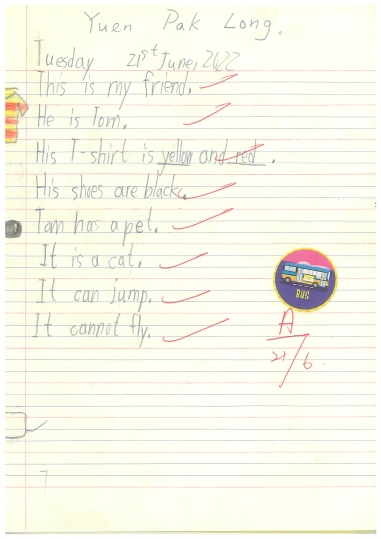 Yuen Pak Long.
Tuesday 21st June, 2022
This is my friend.
He is Tom.
His T-shirt is yellow and red.
His shoes are black.
Tom has a pet.
It is a cat.
It can jump.
BUS
It cannot fly.
A
21/6.
7